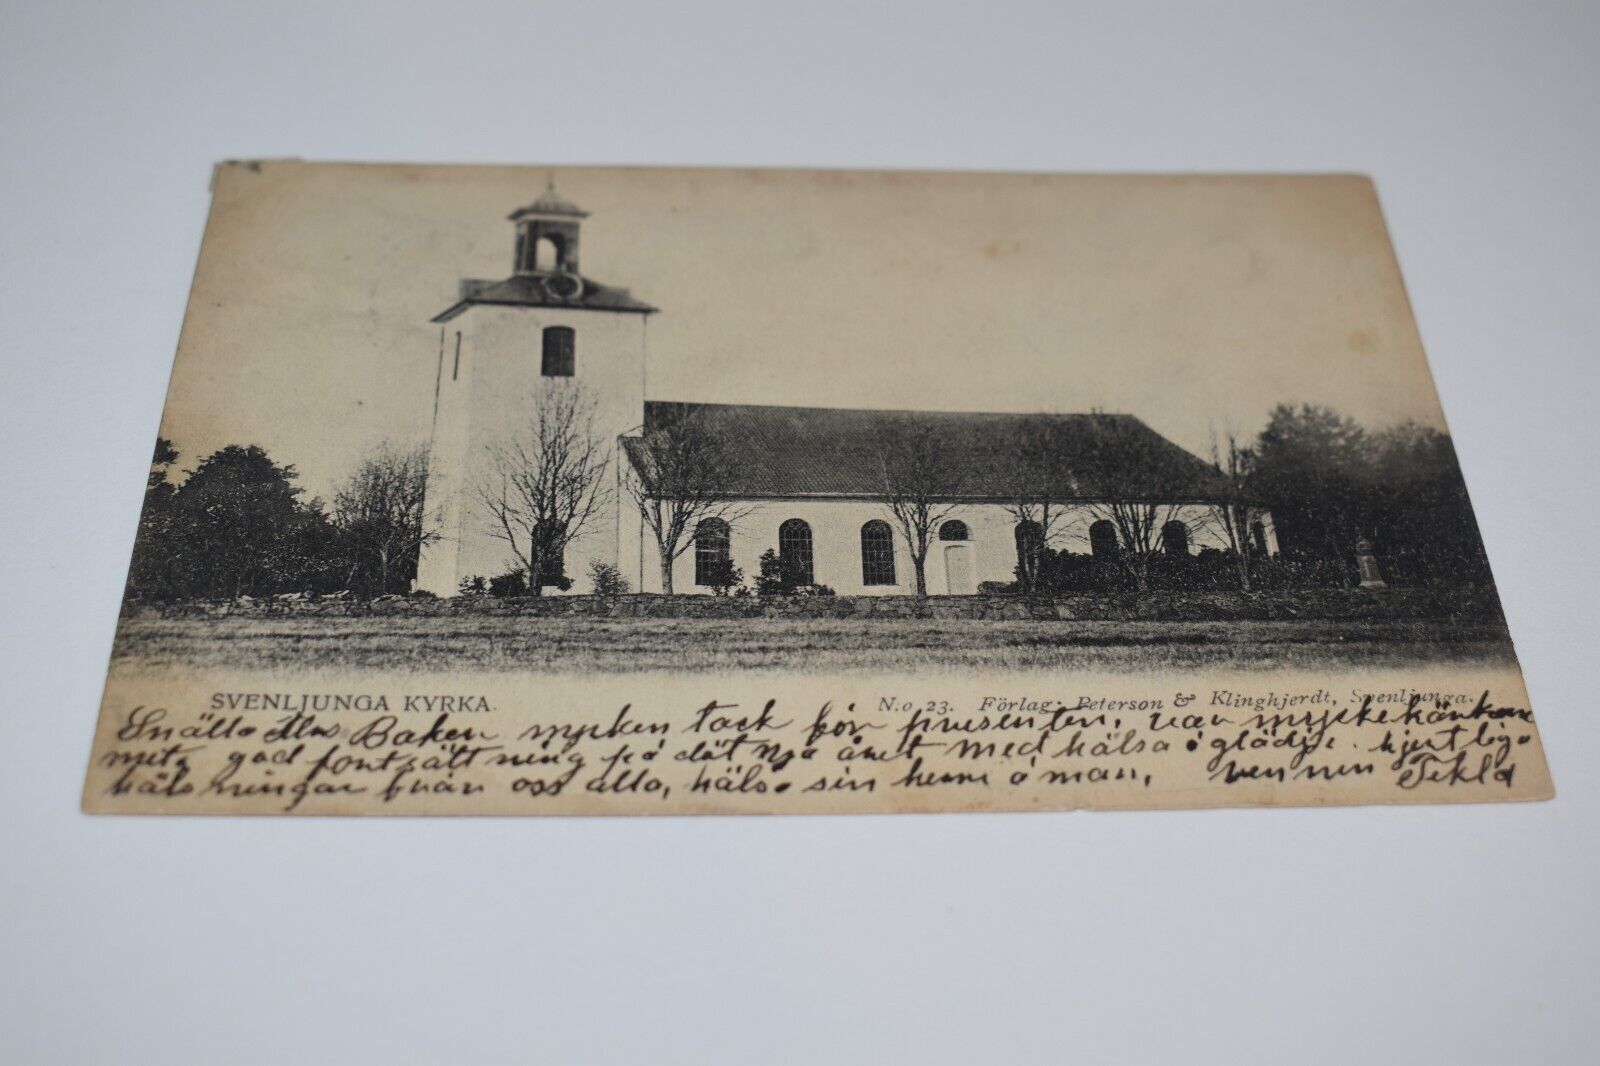 SVENLJUNGA KYRKA.
N:o 23. Förlag: Peterson & Klinghjerdt, Svenljunga.
Snälla Mrs Baken mycken tack för presenten, var mycke
god fortsättning på dät nya året med hälsa o glädje. hjertliga
hälsningar från oss alla, hälsa sin herre o man, vennen Tekla